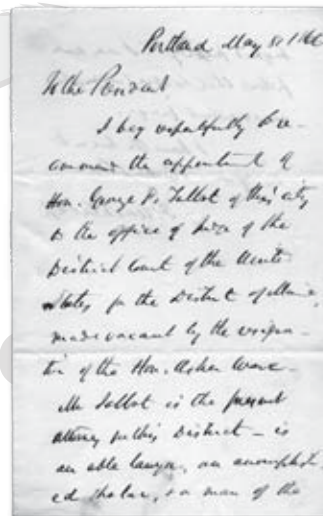 Portland May 31 1866
To the President
I beg respectfully to re-
commend the appointment of
Hon. George F. Talbot of this city
to the office of Judge of the
District Court of the United
States for the District of Maine,
made vacant by the resigna-
tion of the Hon. Asher Ware.
Mr Talbot is the present
attorney for this District – is
an able lawyer, an accomplish-
ed scholar, & a man of the